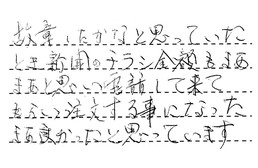 故障したかなと思っていた
とき新聞のチラシ金額もまあ
まあと思い電話して来て
もらい注文する事になった
まあ良かったと思っています